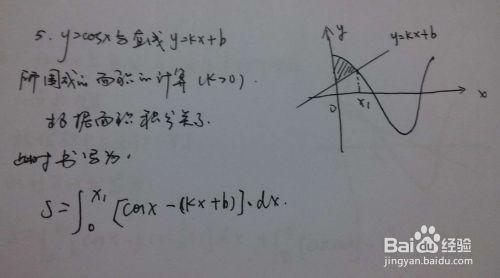 5. y=cosx与直线y=kx+b
所围成的面积的计算(k>0).
根据面积积分关系
此时书写为:
S=∫₀^{x₁}[cosx-(kx+b)]·dx.
y
y=kx+b
0
x₁
x
Baidu经验
jingyan.baidu.com